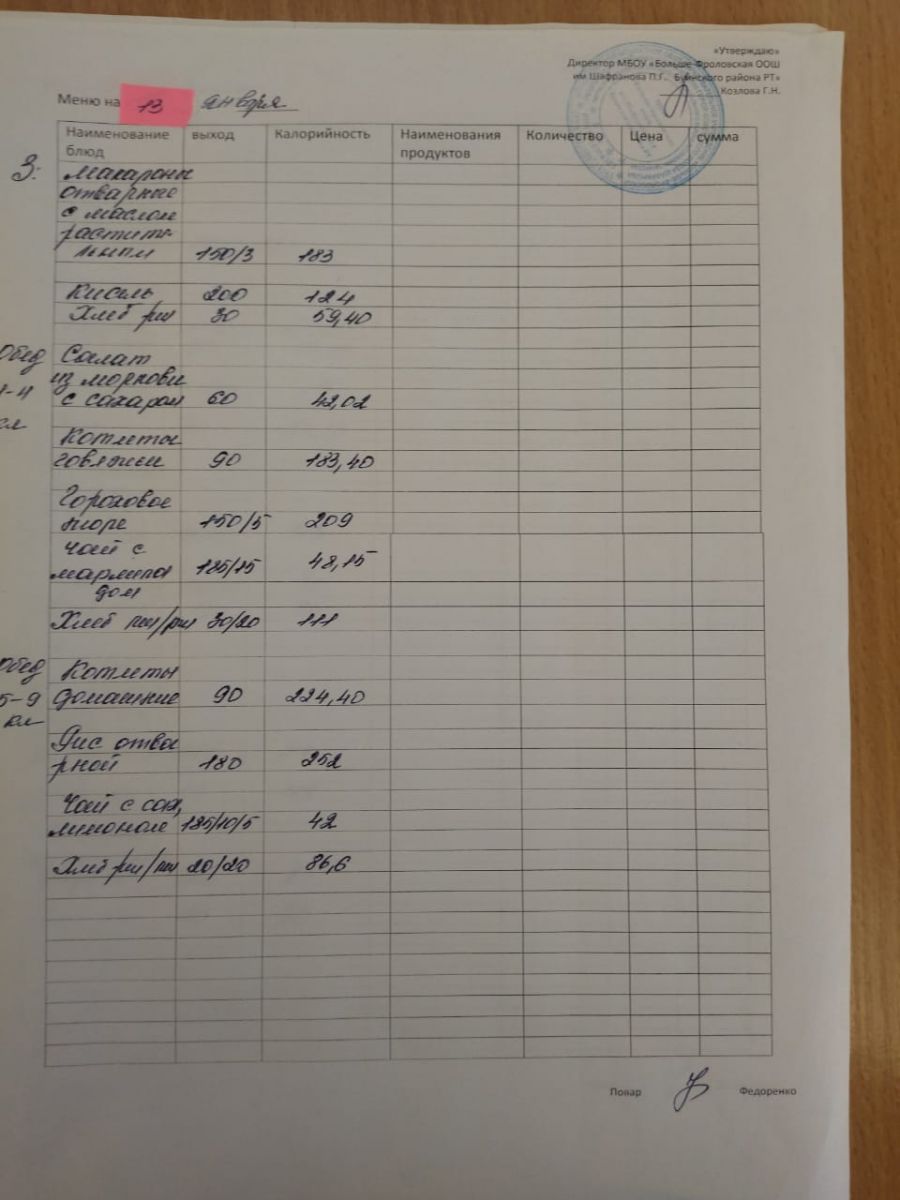 «Утверждаю»
Директор МБОУ «Больше-Фроловская ООШ
им Шафранова П.Г. Буинского района РТ»
Козлова Г.Н.
Меню на 13 января
Наименование блюд выход Калорийность Наименования продуктов Количество Цена сумма
З: Макароны
отварные
с маслом
растите
льным 150/3 183
Кисель 200 124
Хлеб рж 30 59,40
Обед Салат
1-4 из моркови
кл с сахаром 60 42,02
Котлеты
говяжьи 90 183,40
Гороховое
пюре 150/5 209
Чай с
мармела 185/15 48,15
дом
Хлеб пш/рж 30/20 111
Обед Котлеты
5-9 домашние 90 224,40
кл
Рис отва
рной 180 252
Чай с сах,
лимоном 185/10/5 42
Хлеб рж/пш 20/20 86,6
Повар Федоренко